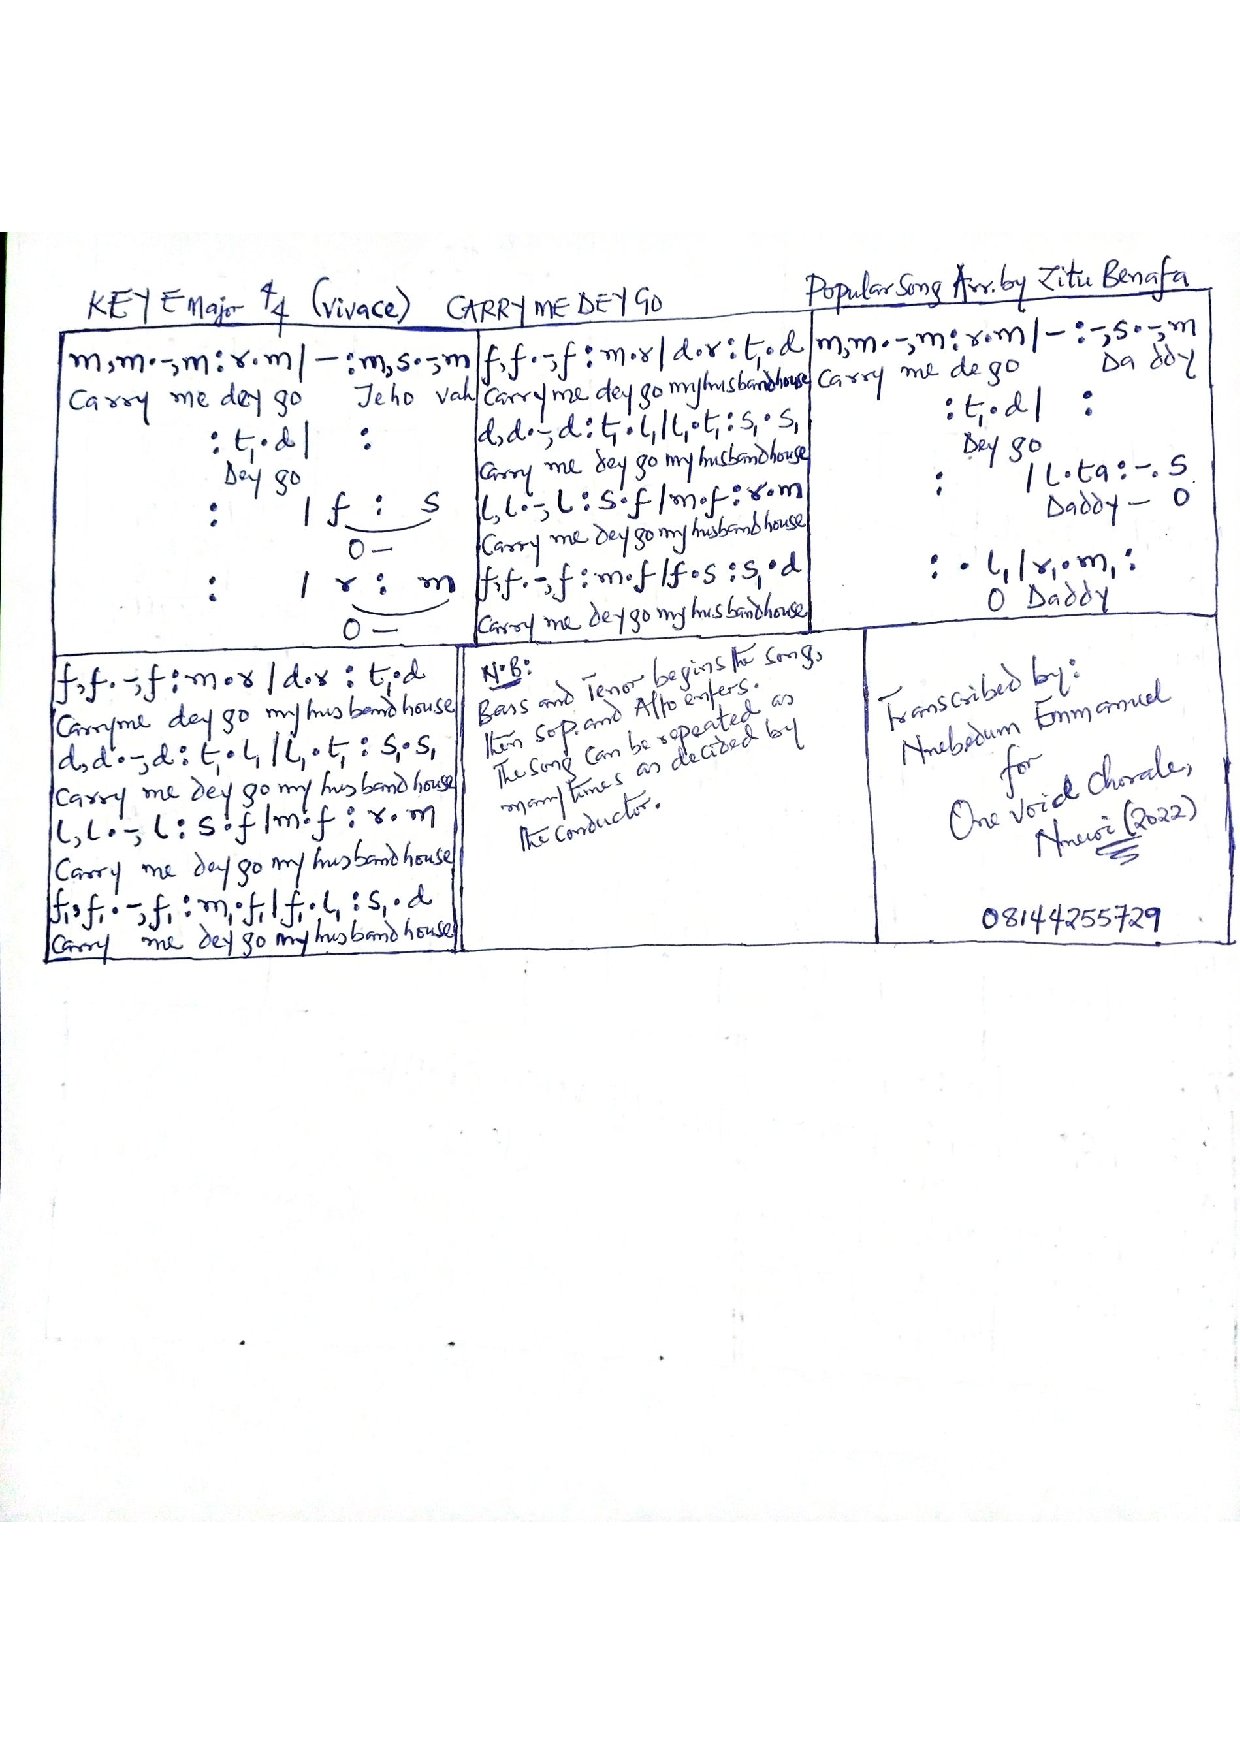 KEY E Major 4/4 (vivace) CARRY ME DEY GO Popular Song Arr. by Zitu Benafa
m,m.-,m:r.m|-:m,s.-,m
Carry me dey go Jeho vah
:t₁.d| :
Dey go
: |f : s
O-
: |r : m
O-
f,f.-,f:m.r|d.r:t₁.d
Carry me dey go my husband house
d,d.-,d:t₁.l₁|l₁.t₁:s₁.s₁
Carry me dey go my husband house
l,l.-,l:s.f|m.f:r.m
Carry me dey go my husband house
f,f.-,f:m.f|f.s:s₁.d
Carry me dey go my husband house
m,m.-,m:r.m|-:-,s.-,m
Carry me de go Da ddy
:t₁.d| :
Dey go
: |l.ta:-.s
Daddy - O
: .l₁|r₁.m₁:
O Daddy
f,f.-,f:m.r|d.r:t₁.d
Carry me dey go my husband house
d,d.-,d:t₁.l₁|l₁.t₁:s₁.s₁
Carry me dey go my husband house
l,l.-,l:s.f|m.f:r.m
Carry me dey go my husband house
f₁,f₁.-,f₁:m₁.f₁|f₁.l₁:s₁.d
Carry me dey go my husband house
N.B:
Bass and Tenor begins the song,
then sop. and Alto enters.
The song can be repeated as
many times as decided by
the conductor.
Transcribed by:
Nnebedum Emmanuel
for
One Void Chorale,
Nnewi (2022)
08144255729